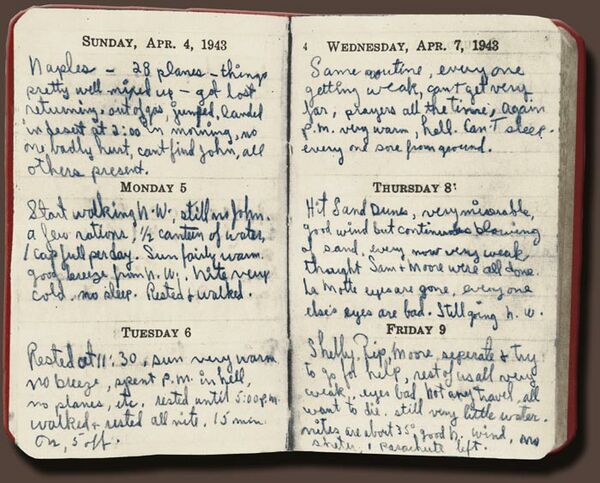 SUNDAY, APR. 4, 1943
Naples – 28 planes – things
pretty well mixed up – got lost
returning, out of gas, jumped, landed
in desert at 2:00 in morning, no
one badly hurt, cant find John, all
others present.
MONDAY 5
Start walking N.W., still no John.
a few rations, ½ canteen of water,
1 cap full per day. Sun fairly warm.
good breeze from N.W. Nite very
cold. no sleep. Rested & walked.
TUESDAY 6
Rested at 11:30, sun very warm
no breeze, spent P.M. in hell,
no planes, etc. rested until 5:00 p.m.
walked & rested all nite. 15 min
on, 5 off.
4 WEDNESDAY, APR. 7, 1943
Same routine, everyone
getting weak, cant get very
far, prayers all the time, again
p.m. very warm, hell. Can't sleep.
every one sore from ground.
THURSDAY 8
Hit Sand Dunes, very miserable,
good wind but continuous blowing
of sand, every now very weak,
thought Sam & Moore were all done.
La Motte eyes are gone, everyone
else's eyes are bad. Still going N.W.
FRIDAY 9
Shelly, Rip, Moore, seperate & try
to go for help, rest of us all very
weak, eyes bad, not any travel, all
want to die. still very little water.
nites are about 35° good N. wind, no
shelter, 1 parachute left.